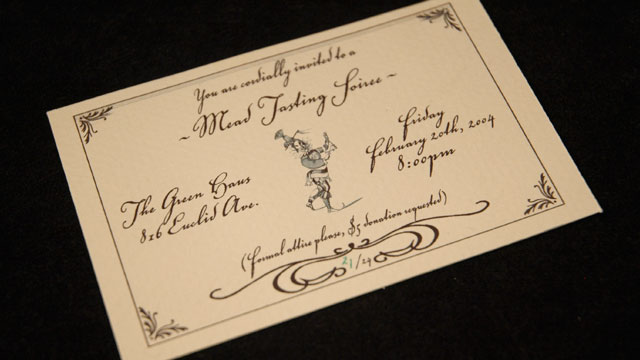 You are cordially invited to a
~ Mead Tasting Soiree ~
The Green Haus
816 Euclid Ave.
Friday
February 20th, 2004
8:00pm
(formal attire please, $5 donation requested)
21/24